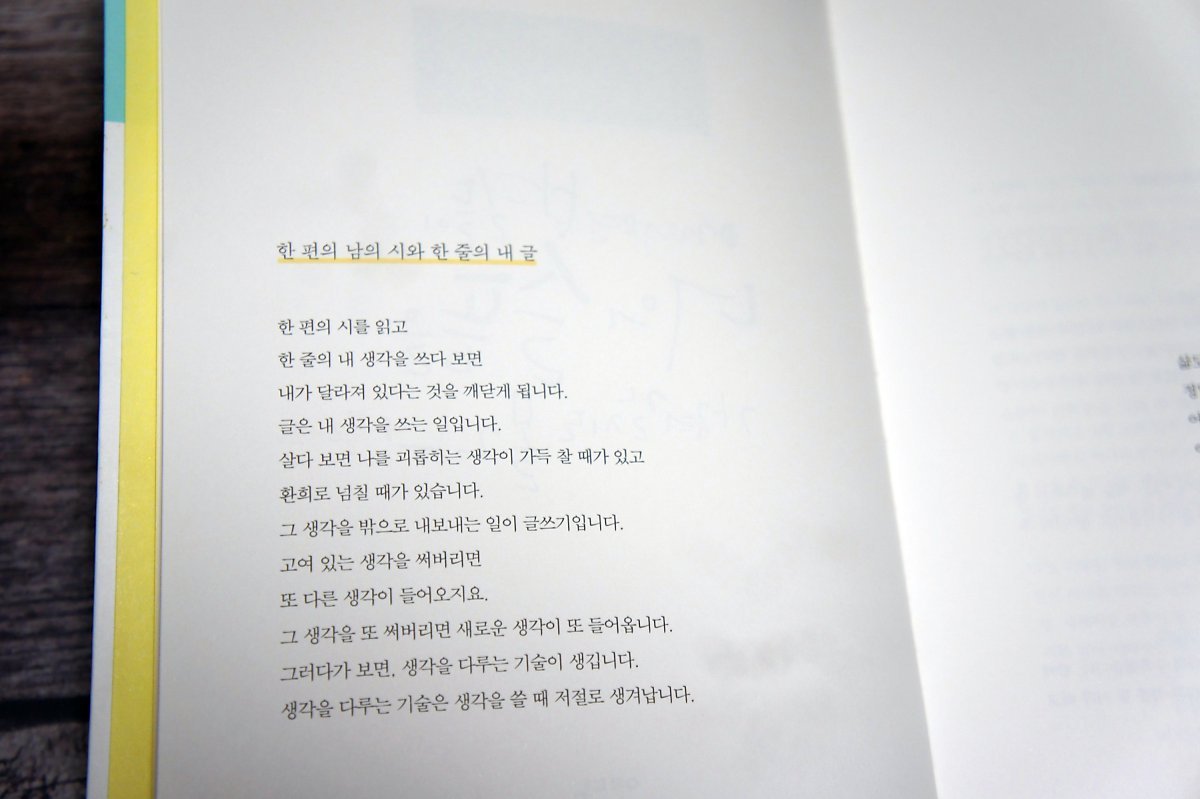 한 편의 남의 시와 한 줄의 내 글
한 편의 시를 읽고
한 줄의 내 생각을 쓰다 보면
내가 달라져 있다는 것을 깨닫게 됩니다.
글은 내 생각을 쓰는 일입니다.
살다 보면 나를 괴롭히는 생각이 가득 찰 때가 있고
환희로 넘칠 때가 있습니다.
그 생각을 밖으로 내보내는 일이 글쓰기입니다.
고여 있는 생각을 써버리면
또 다른 생각이 들어오지요.
그 생각을 또 써버리면 새로운 생각이 또 들어옵니다.
그러다가 보면, 생각을 다루는 기술이 생깁니다.
생각을 다루는 기술은 생각을 쓸 때 저절로 생겨납니다.